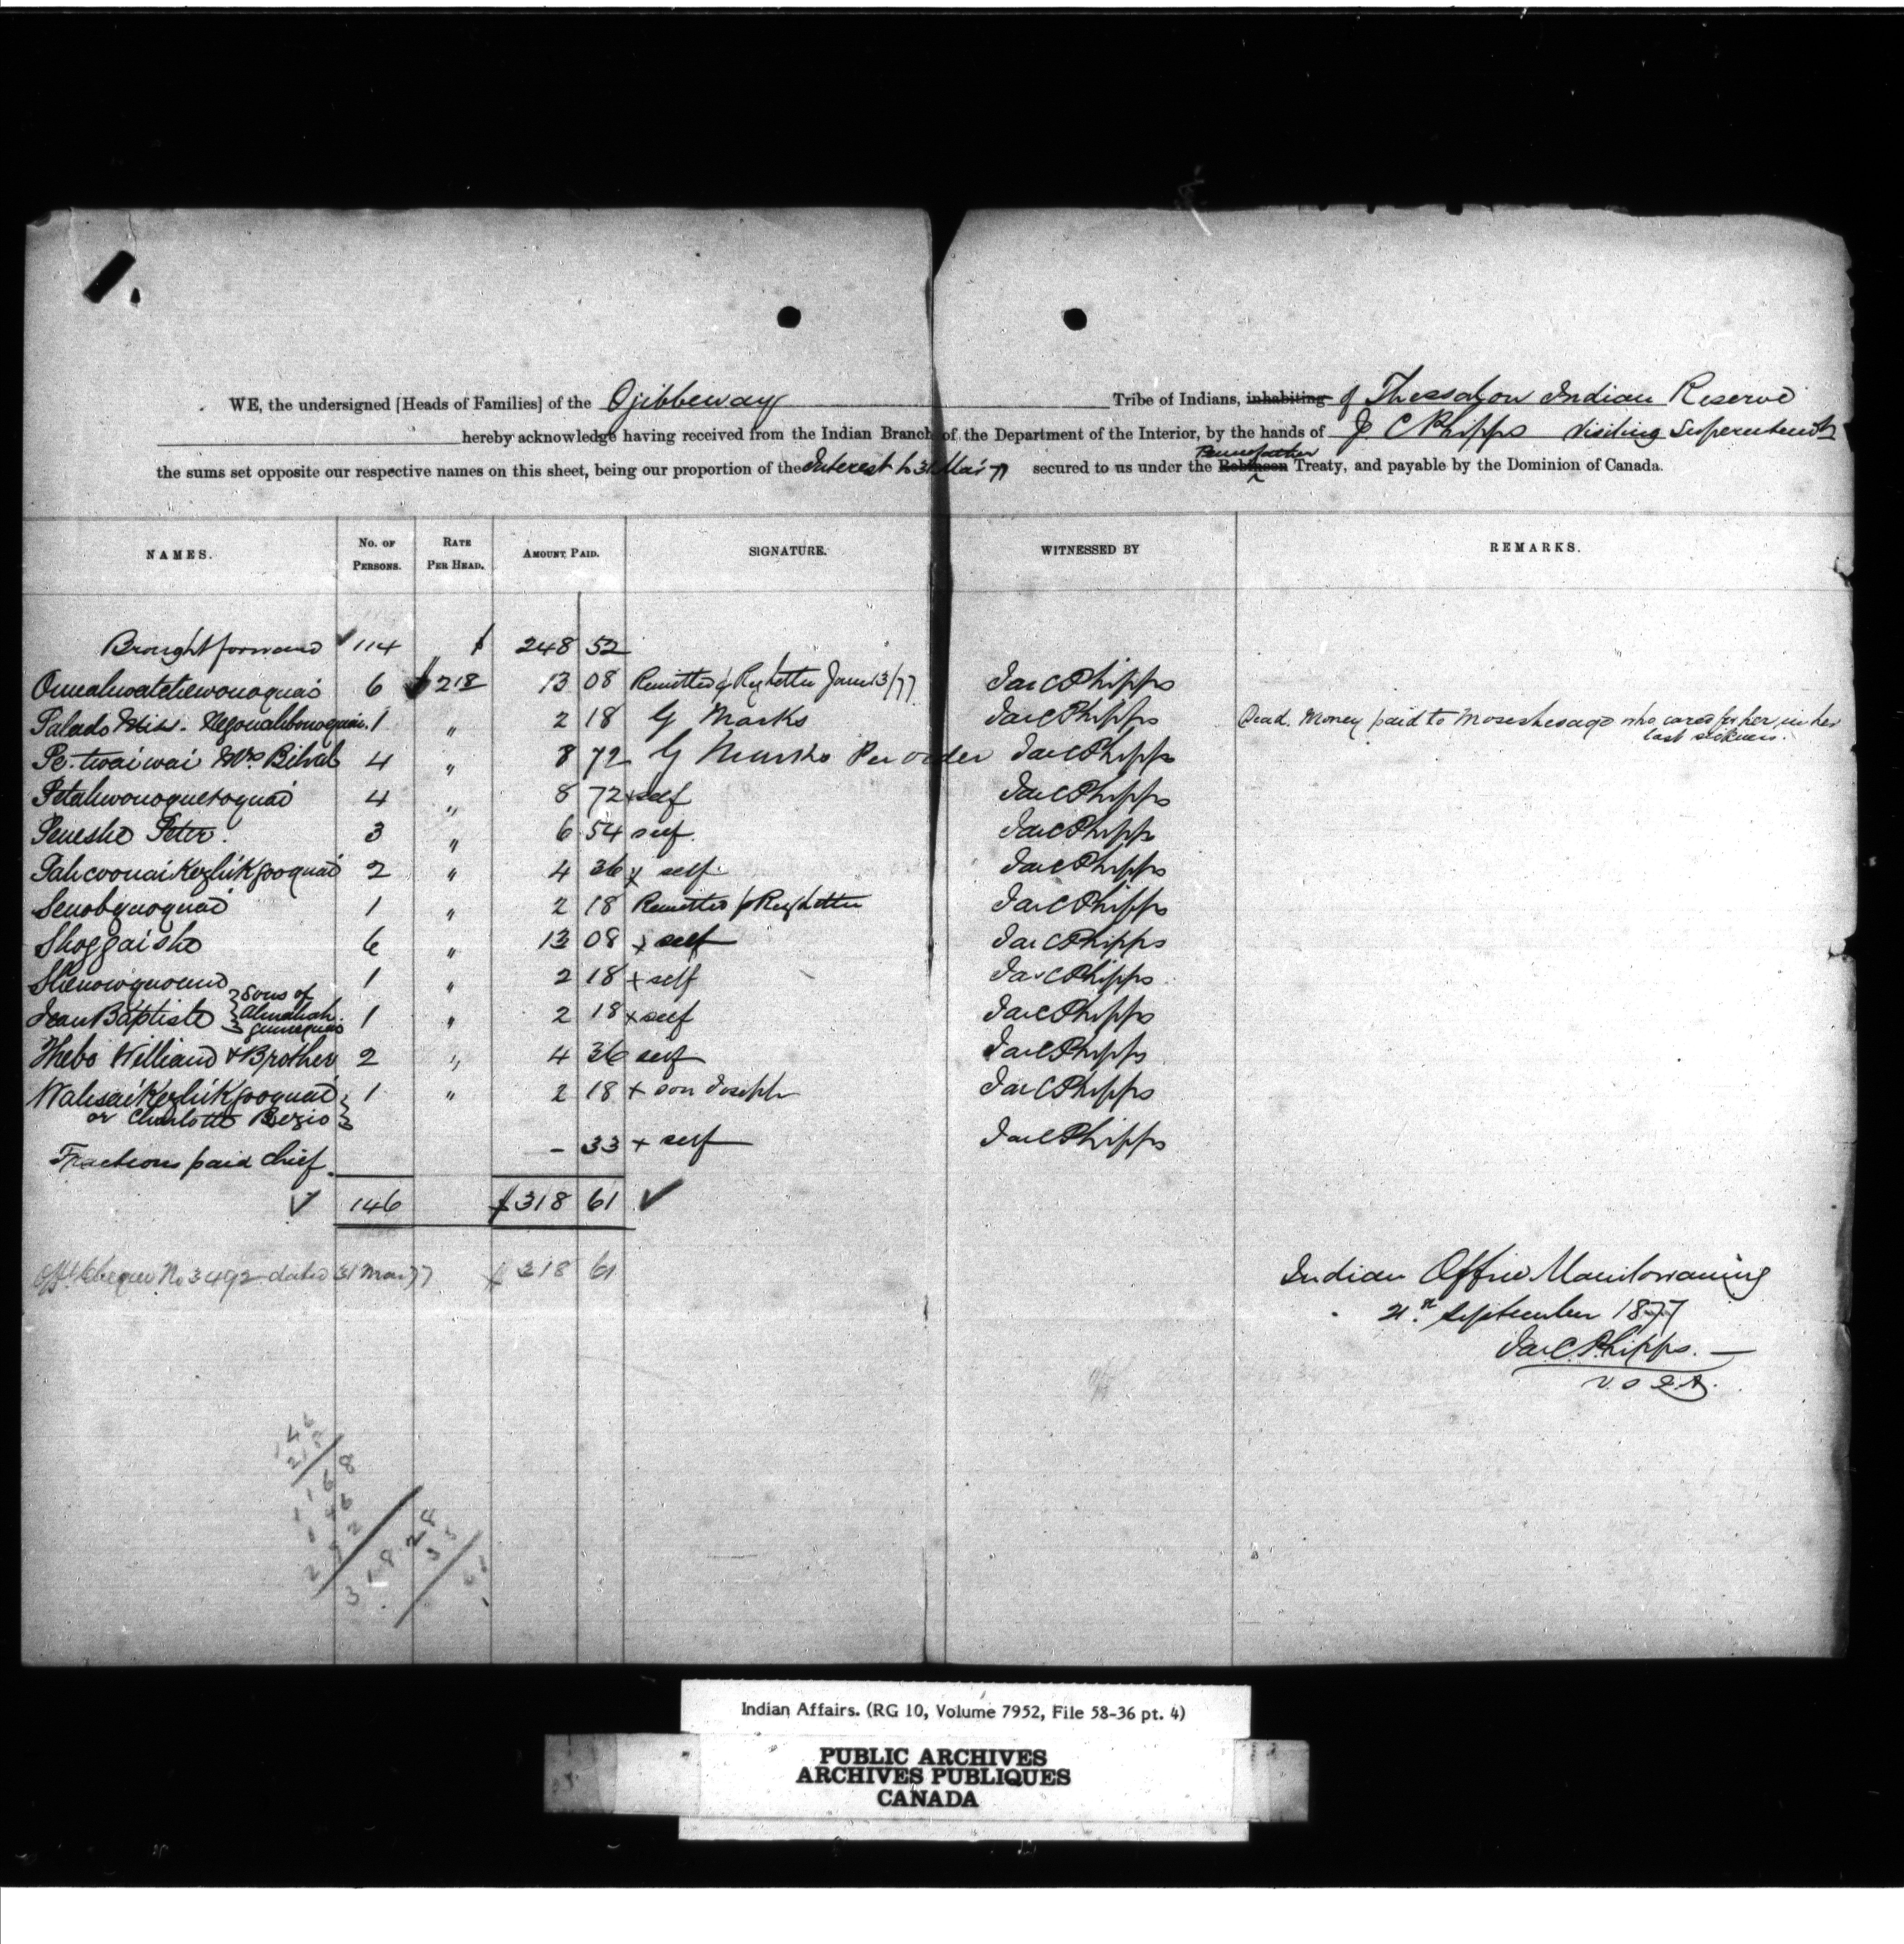 WE, the undersigned [Heads of Families] of the Ojibbeway Tribe of Indians, inhabiting of Thessalon Indian Reserve
hereby acknowledge having received from the Indian Branch of the Department of the Interior, by the hands of J C Phipps Visiting Superintendt
the sums set opposite our respective names on this sheet, being our proportion of the Interest to 31 Mar 77 secured to us under the Robinson Pennefather Treaty, and payable by the Dominion of Canada.
NAMES. No. OF PERSONS. RATE PER HEAD. AMOUNT PAID. SIGNATURE. WITNESSED BY REMARKS.
Brought forward 114 $ 248 52
6 $2 18 13 08 Remitted Regletter June 13/77 Jas C Phipps
1 " 2 18 G Marks Jas C Phipps Dead. Money paid to who cared for her in her
last sickness.
Pe-twaiwai Mrs 4 " 8 72 G Marks Per order Jas C Phipps
Petahwonoquetoquai 4 " 8 72 x self Jas C Phipps
Peneshe Peter. 3 " 6 54 self Jas C Phipps
2 " 4 36 x self Jas C Phipps
1 " 2 18 Remitted p Regletter Jas C Phipps
Shoggaishe 6 " 13 08 x self Jas C Phipps
1 " 2 18 + self Jas C Phipps
Jean Baptiste } Sons of 1 " 2 18 x self Jas C Phipps
Thebo William & Brother 2 " 4 36 self Jas C Phipps
1 " 2 18 + son Joseph Jas C Phipps
or Charlotte
Fractions paid Chief. - 33 + self Jas C Phipps
146 $318 61
Offl Cheque No 3492 dated 31 Mar 77 $ 318 61
Indian Office Manitowaning
September 1877
Jas C. Phipps.
V. S I. A.
146
218
1168
146
292
318 28
33
61
Indian Affairs. (RG 10, Volume 7952, File 58-36 pt. 4)
PUBLIC ARCHIVES
ARCHIVES PUBLIQUES
CANADA